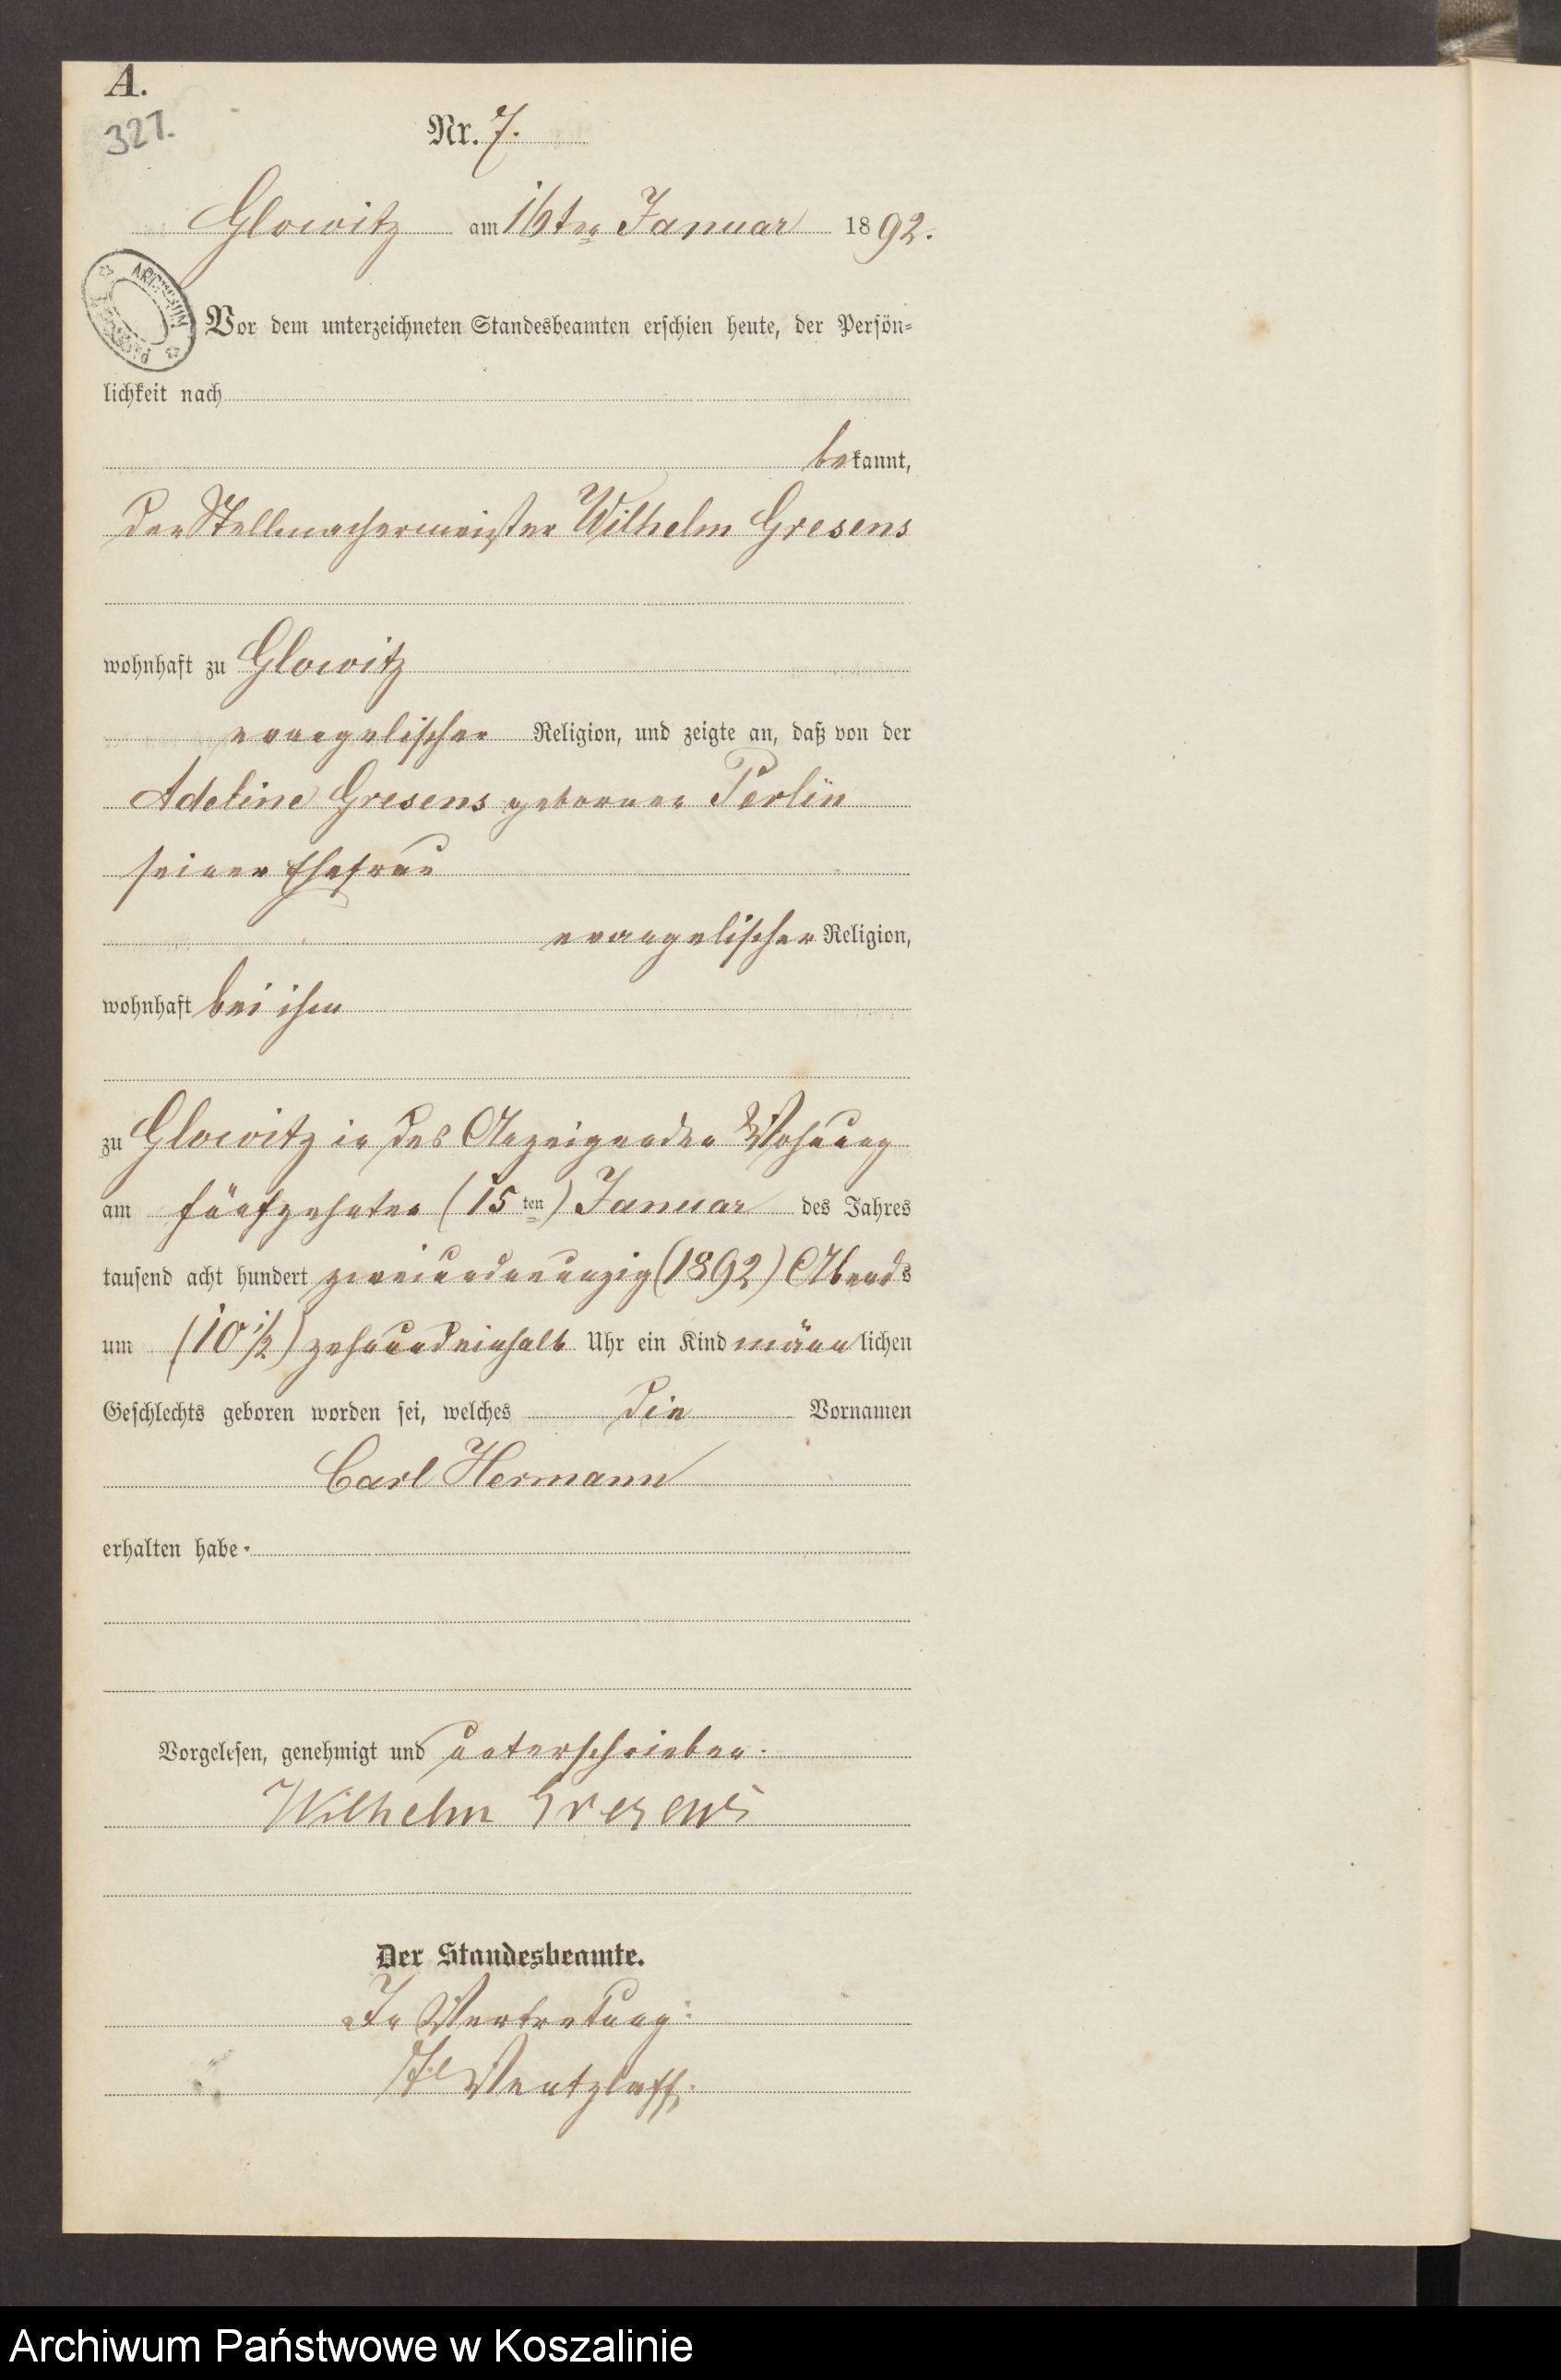 A.
327.
Nr. 7.
Glowitz am 16ten Januar 1892.
Vor dem unterzeichneten Standesbeamten erschien heute, der Persön-
lichkeit nach
bekannt,
der Stellmachermeister Wilhelm Gresens
wohnhaft zu Glowitz
evangelischer Religion, und zeigte an, daß von der
Adeline Gresens geborner Perlin
seiner Ehefrau
evangelischer Religion,
wohnhaft bei ihm
zu Glowitz in des Anzeigenden Wohnung
am fünfzehnten (15ten) Januar des Jahres
tausend acht hundert zweiundneunzig (1892) Abends
um (10 1/2) zehnundeinhalb Uhr ein Kind männlichen
Geschlechts geboren worden sei, welches die Vornamen
Carl Hermann
erhalten habe.
Vorgelesen, genehmigt und unterschrieben.
Wilhelm Gresens
Der Standesbeamte.
In Vertretung:
Wentzlaff.
Archiwum Państwowe w Koszalinie